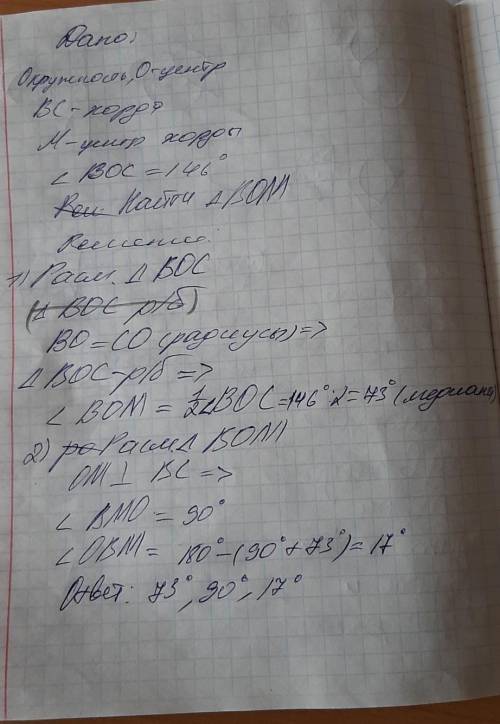 Дано:
Окружность, О-центр
ВС - хорда
М - центр хорды
∠ BOC = 146°
Реш Найти △BOM
Решение:
1) Расм. △ BOC
(△ BOC р/б)
BO = CO (радиусы) =>
△ BOC - р/б =>
∠ BOM = 1/2∠BOC = 146° : 2 = 73° (медиана)
2) ра Расм. △ BOM
OM ⊥ BC =>
∠ BMO = 90°
∠ OBM = 180° - (90° + 73°) = 17°
Ответ: 73°, 90°, 17°